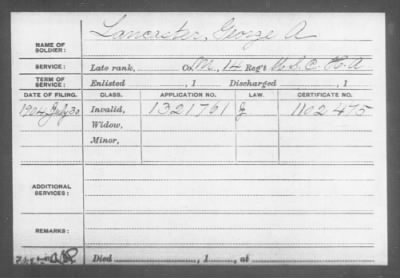 NAME OF SOLDIER: Lancaster, George A
SERVICE: Late rank, Co. M, 14 Reg't U.S.C. H.A
TERM OF SERVICE: Enlisted , 1 Discharged , 1
DATE OF FILING. CLASS. APPLICATION NO. CERTIFICATE NO.
1904 July 30 Invalid, 1321761 1102475
Widow,
Minor,
ADDITIONAL SERVICES:
REMARKS:
Died , 1 , at